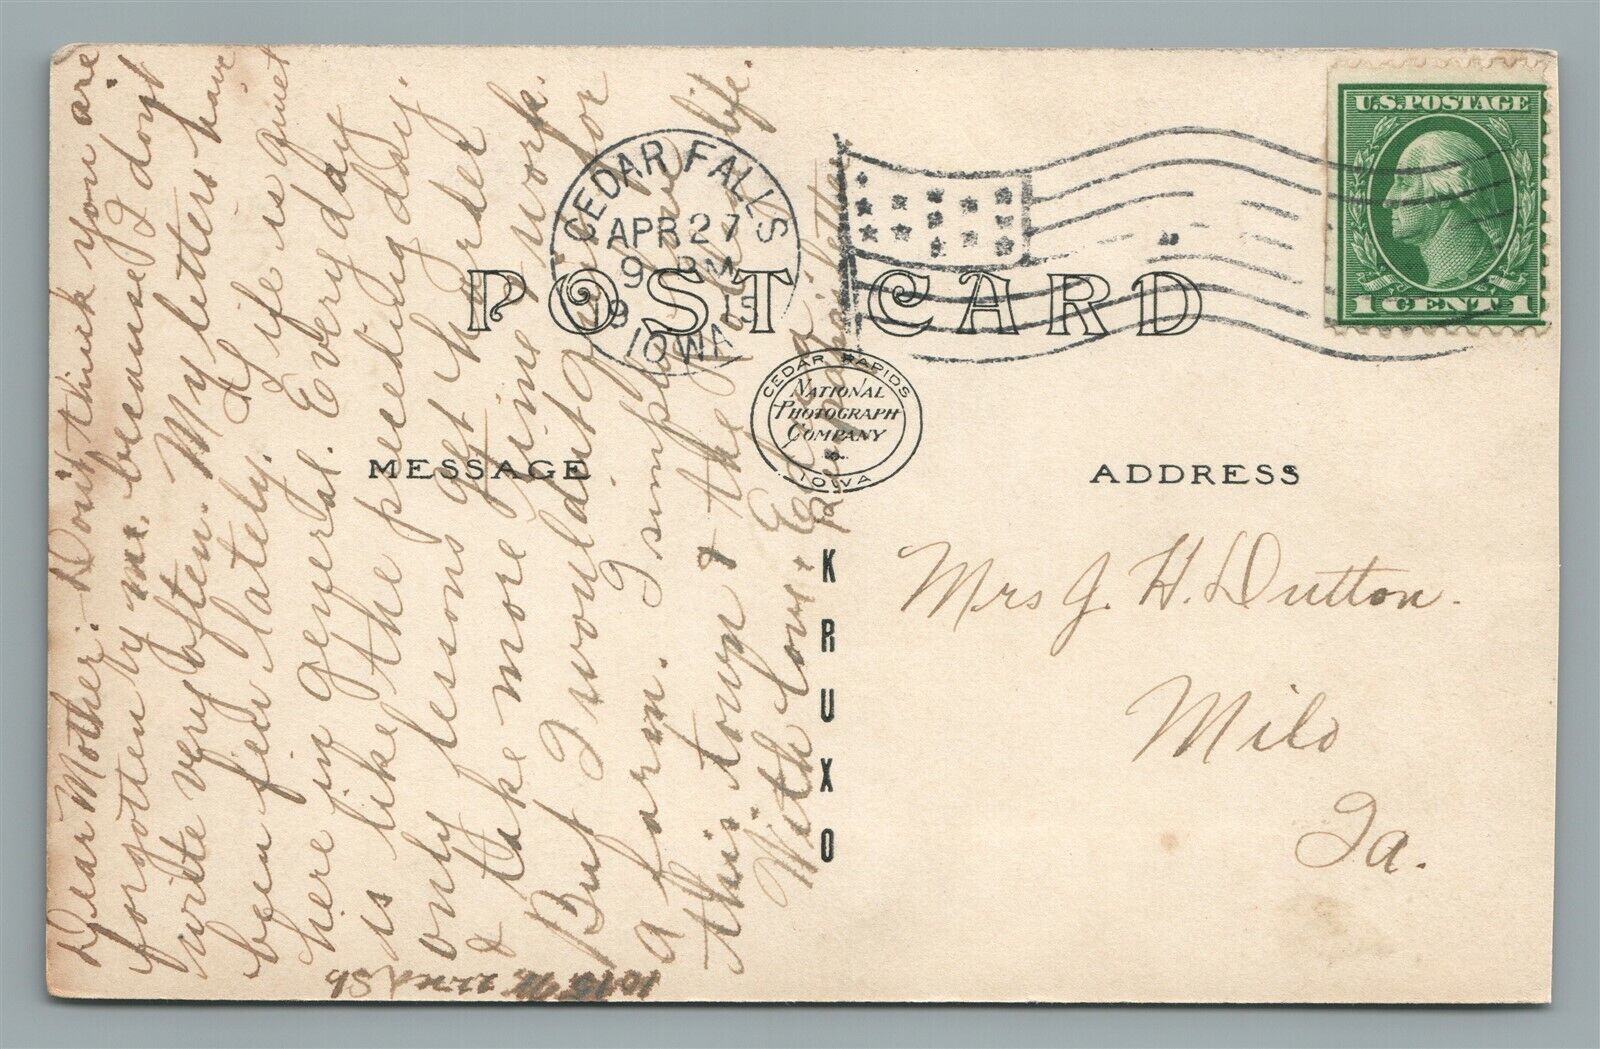 U.S. POSTAGE
1 CENT 1
CEDAR FALLS
APR 27
9 PM
1915
IOWA
POST CARD
CEDAR RAPIDS
NATIONAL
PHOTOGRAPH
COMPANY
IOWA
MESSAGE
ADDRESS
KRUXO
Dear Mother:- Don't think you are
forgotten by me, because I don't
write very often. My letters have
been few lately. Life is quiet
here in general. Every day
is like the preceding day,
only lessons get harder
& take more time & work.
But I wouldn't for
a farm. I simply love
this town & the life.
With love
Mrs J. H. Dutton.
Milo
Ia.